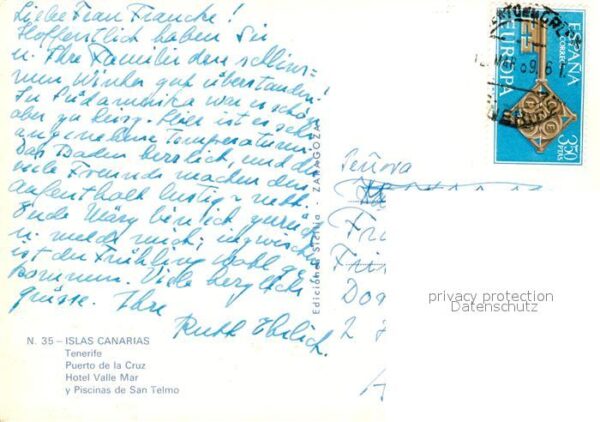 Liebe Frau Francke!
Hoffentlich haben Sie
u. Ihre Familie den schlim=
men Winter gut überstanden!
In Südamerika war es schön
aber zu heiss. Hier ist es sehr
angenehme Temperaturen.
Das Baden herrlich, und die
viele Freunde machen den
Aufenthalt lustig u. nett.
Ende März bin ich zurück
u. melde mich; inzwischen
ist der Frühling wohl ge=
kommen. Viele herzliche
Grüsse. Ihre
Ruth Ehrlich.
N. 35 - ISLAS CANARIAS
Tenerife
Puerto de la Cruz
Hotel Valle Mar
y Piscinas de San Telmo
Ediciones Sicilia - ZARAGOZA
ESPAÑA
CORREOS
EUROPA
3'50
PTAS
Señora
privacy protection
Datenschutz